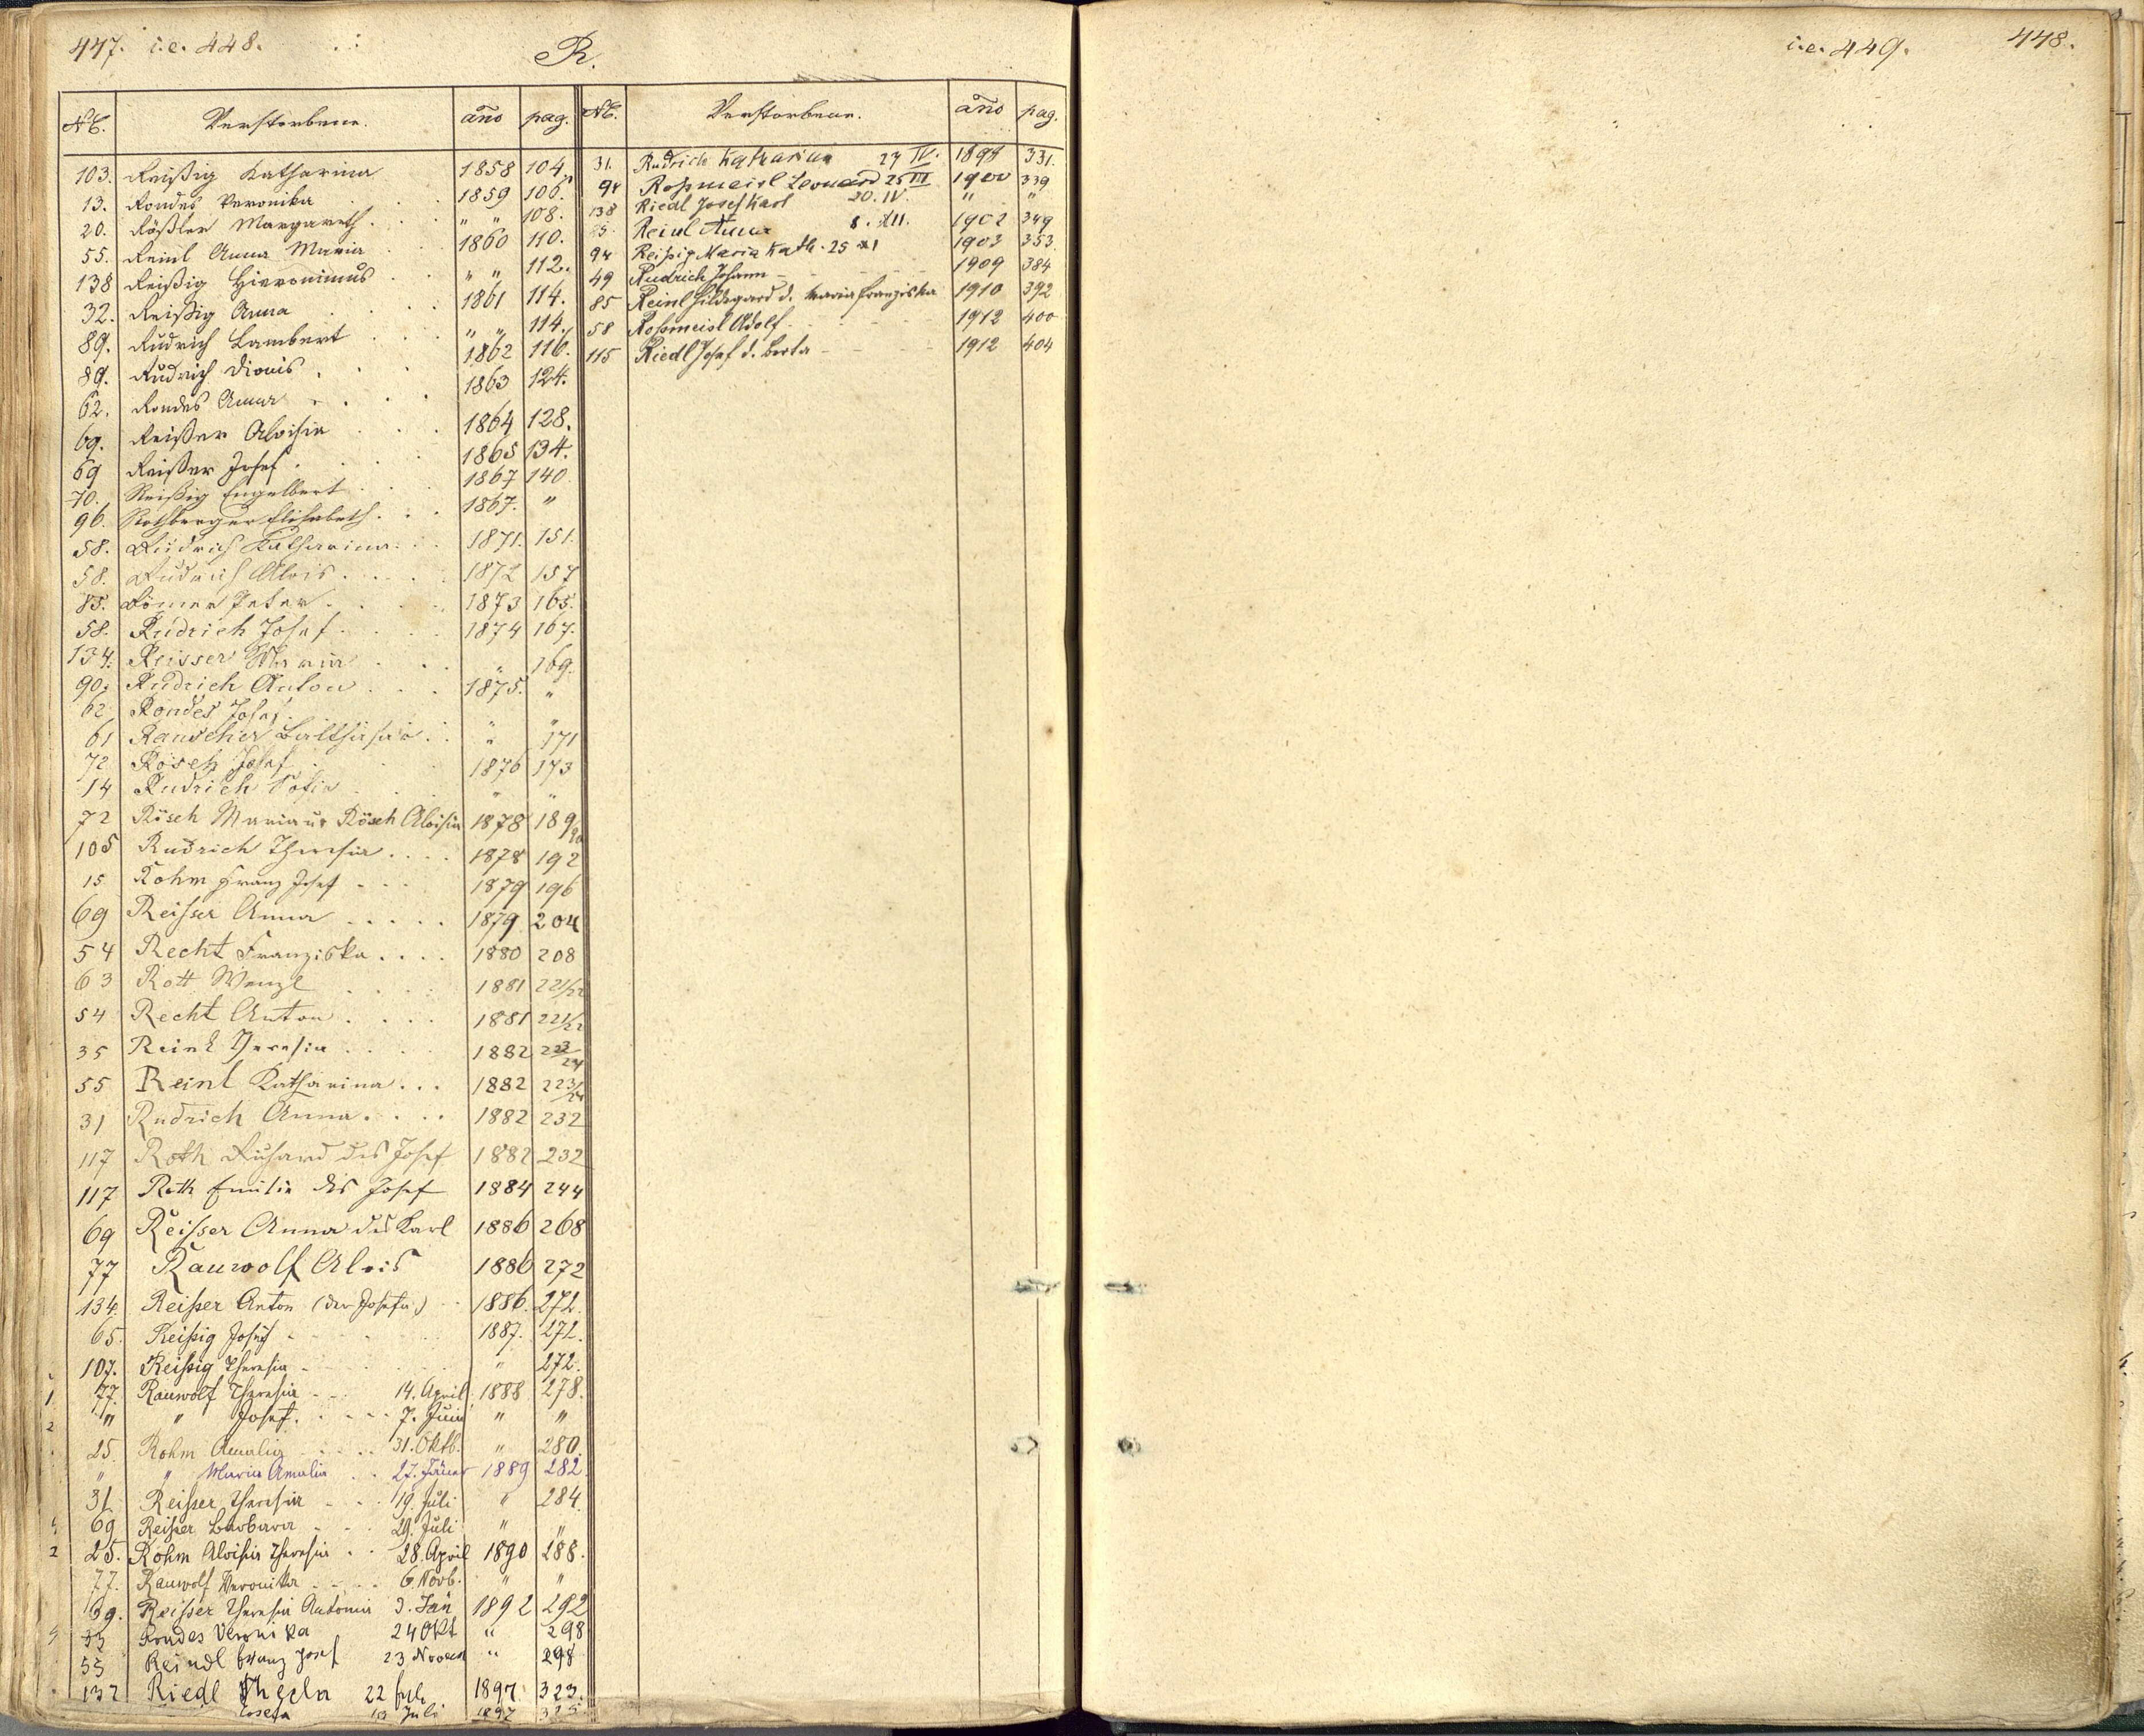 447. i.e. 448.
R.
N. Verstorbene. año pag.
103. Reißig Katharina 1858 104.
13. Rondes Veronika . . . 1859 106.
20. Rößler Margareth . . . " " 108.
55. Reinl Anna Maria . . 1860 110.
138 Reißig Hieronimus . . " " 112.
32. Reißig Anna . . . 1861 114.
89. Rudrich Lambert . . . " " 114.
89. Rudrich Dionis . . . 1862 116.
62. Rondes Anna . . . . 1863 124.
69. Reißer Aloisia . . . 1864 128.
69 Reißer Josef . . . . 1865 134.
70. Reißig Engelbert . . . 1867 140
96. Rothberger Elisabeth . . . 1867. "
58. Rudrich Katharina . . . 1871. 151.
58. Rudrich Alois . . . . 1872 157
85. Römer Peter . . . . 1873 165.
58. Rudrich Josef . . . . 1874 167.
134. Reisser Maria . . . " 169.
90. Rudrich Anton . . . 1875. "
62 Rondes Josef . . . " "
61 Rauscher Balthasar . . " 171
72 Rösch Josef . . . 1876 173
14 Rudrich Sofia . . . " "
72 Rösch Maria u. Rösch Aloisia 1878 189/90
105 Rudrich Theresia . . . . 1878 192
15 Rohm Franz Josef . . . 1879 196
69 Reisser Anna . . . . . 1879 204
54 Recht Franziska . . . . 1880 208
63 Rott Wenzl . . . . 1881 221/22
54 Recht Anton . . . . 1881 221/22
35 Reinl Theresia . . . . 1882 223/24
55 Reinl Katharina . . . 1882 223/24
31 Rudrich Anna . . . . 1882 232
117 Roth Richard des Josef 1882 232
117 Roth Emilie des Josef 1884 244
69 Reisser Anna des Karl 1886 268
77 Rauwolf Alois 1886 272
134. Reißer Anton (der Josefa) 1886. 272.
65. Reißig Josef 1887. 272.
107. Reißig Theresia " 272.
77. Rauwolf Theresia 14. April 1888 278.
" " Josef. 7. Juni " "
25. Rohm Amalia 31. Oktb. " 280.
" " Maria Amalia . . 27. Jäner 1889 282.
31 Reißer Theresia 19. Juli " 284.
69 Reißer Barbara 29. Juli " "
25. Rohm Aloisia Theresia . . 28. April 1890 288.
77. Rauwolf Veronika 6. Novb. " "
69. Reisser Theresia Antonia 3. Jän 1892 292
33 Rondes Veronika 24 Okt " 298
55 Reindl Franz Josef 23 Novem " 298
132 Riedl Thecla 22 1897 323.
Josefa Juli 1897
N. Verstorbene. año pag.
31. Rudrich Katharina 27 IV. 1898 331.
94 Roßmeisl Leonard 25 III 1900 339
138 Riedl Josef Karl 20. IV. " "
Reinl Anna 8. XII. 1902 349
94 Reißig Maria Kath. 25 XI 1903 353
49 Rudrich Johann 1909 384
85 Reinl Hildegard d. Maria Franziska 1910 392
58 Roßmeisl Adolf 1912 400
115 Riedl Josef d. Berta 1912 404
i.e. 449. 448.